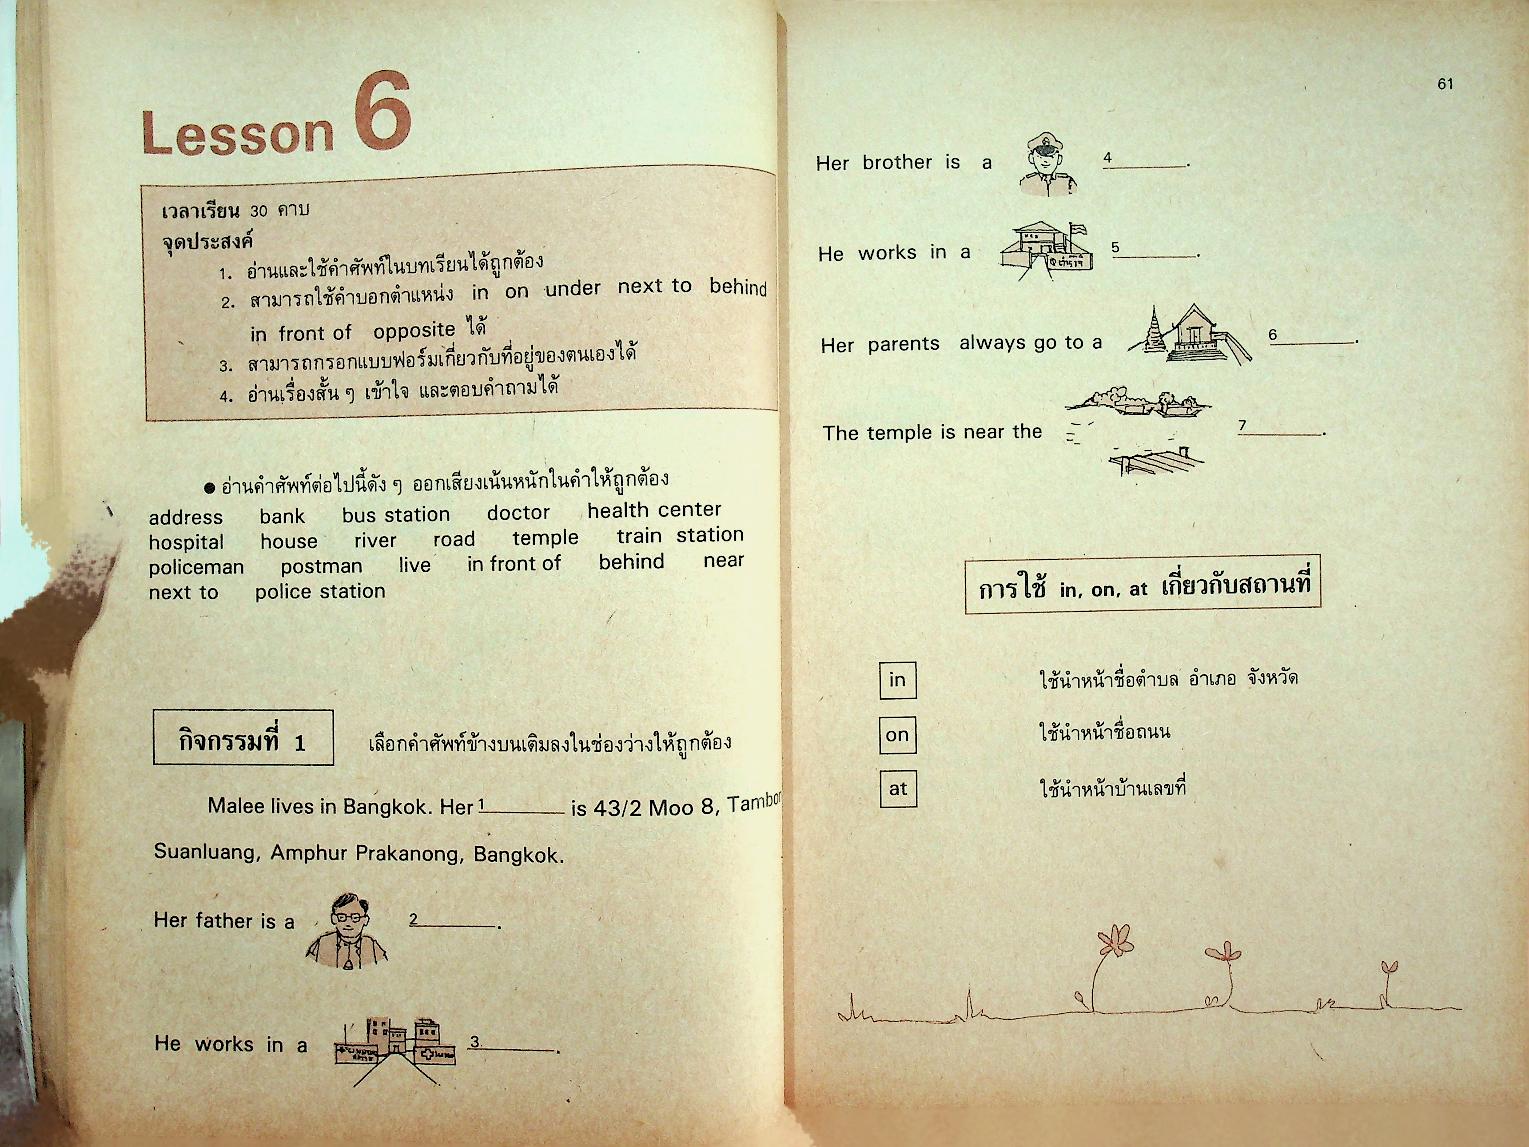 Lesson 6
เวลาเรียน 30 คาบ
จุดประสงค์
1. อ่านและใช้คำศัพท์ในบทเรียนได้ถูกต้อง
2. สามารถใช้คำบอกตำแหน่ง in on under next to behind
in front of opposite ได้
3. สามารถกรอกแบบฟอร์มเกี่ยวกับที่อยู่ของตนเองได้
4. อ่านเรื่องสั้น ๆ เข้าใจ และตอบคำถามได้
● อ่านคำศัพท์ต่อไปนี้ดัง ๆ ออกเสียงเน้นหนักในคำให้ถูกต้อง
address bank bus station doctor health center
hospital house river road temple train station
policeman postman live in front of behind near
next to police station
กิจกรรมที่ 1 เลือกคำศัพท์ข้างบนเติมลงในช่องว่างให้ถูกต้อง
Malee lives in Bangkok. Her 1________ is 43/2 Moo 8, Tambon
Suanluang, Amphur Prakanong, Bangkok.
Her father is a 2________.
He works in a 3________.
61
Her brother is a 4________.
He works in a 5________.
Her parents always go to a 6________.
The temple is near the 7________.
การใช้ in, on, at เกี่ยวกับสถานที่
in ใช้นำหน้าชื่อตำบล อำเภอ จังหวัด
on ใช้นำหน้าชื่อถนน
at ใช้นำหน้าบ้านเลขที่